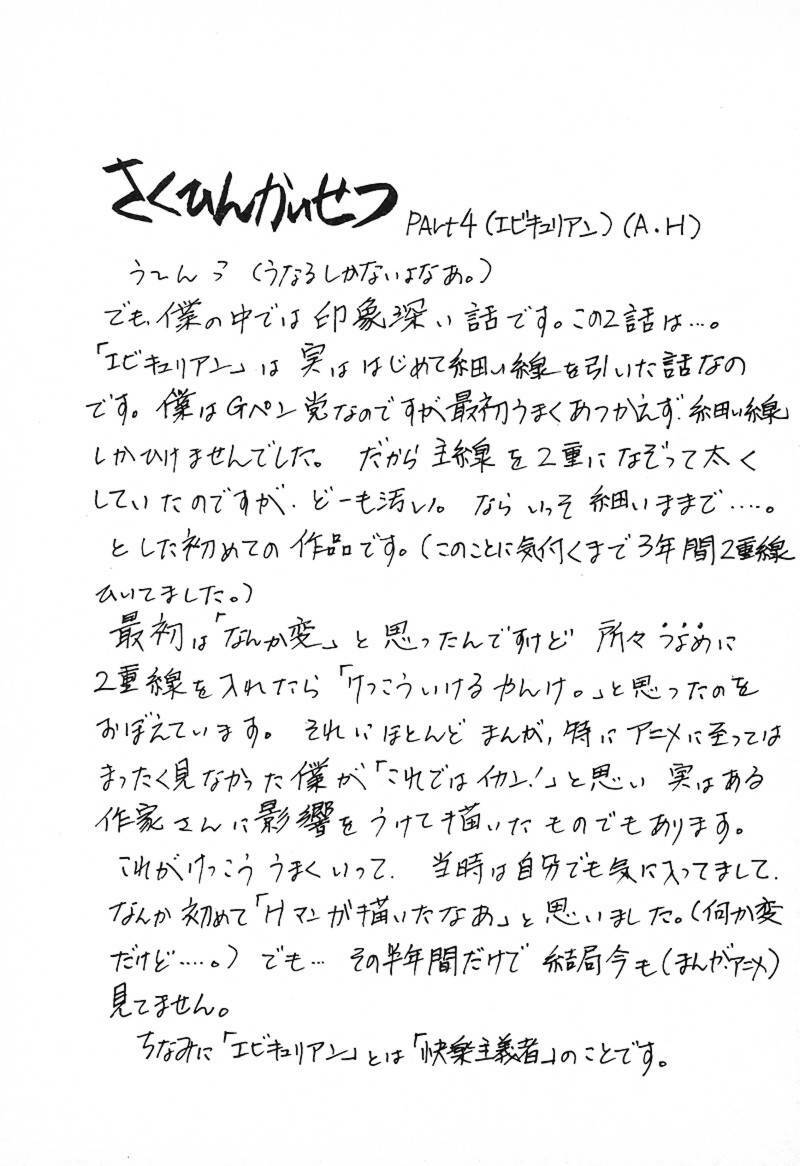 さくひんかいせつ PArt4(エピキュリアン)(A.H)
う〜んっ(うなるしかないよなあ。)
でも、僕の中では印象深い話です。この2話は…。
「エピキュリアン」は実ははじめて細い線を引いた話なの
です。僕はGペン党なのですが最初うまくあつかえず、細い線
しかひけませんでした。だから主線を2重になぞって太く
していたのですが、どーも汚い。ならいっそ細いままで‥‥。
とした初めての作品です。(このことに気付くまで3年間2重線
ひいてました。)
最初は「なんか変」と思ったんですけど所々うなめに
2重線を入れたら「けっこういけるやんけ。」と思ったのを
おぼえています。それにほとんどまんが、特にアニメに至っては
まったく見なかった僕が「これではイカン!」と思い実はある
作家さんに影響をうけて描いたものでもあります。
これがけっこううまくいって、当時は自分でも気に入ってまして、
なんか初めて「Hマンガ描いたなあ」と思いました。(何か変
だけど‥‥。)でも…その半年間だけで結局今も(まんが、アニメ)
見てません。
ちなみに「エピキュリアン」とは「快楽主義者」のことです。